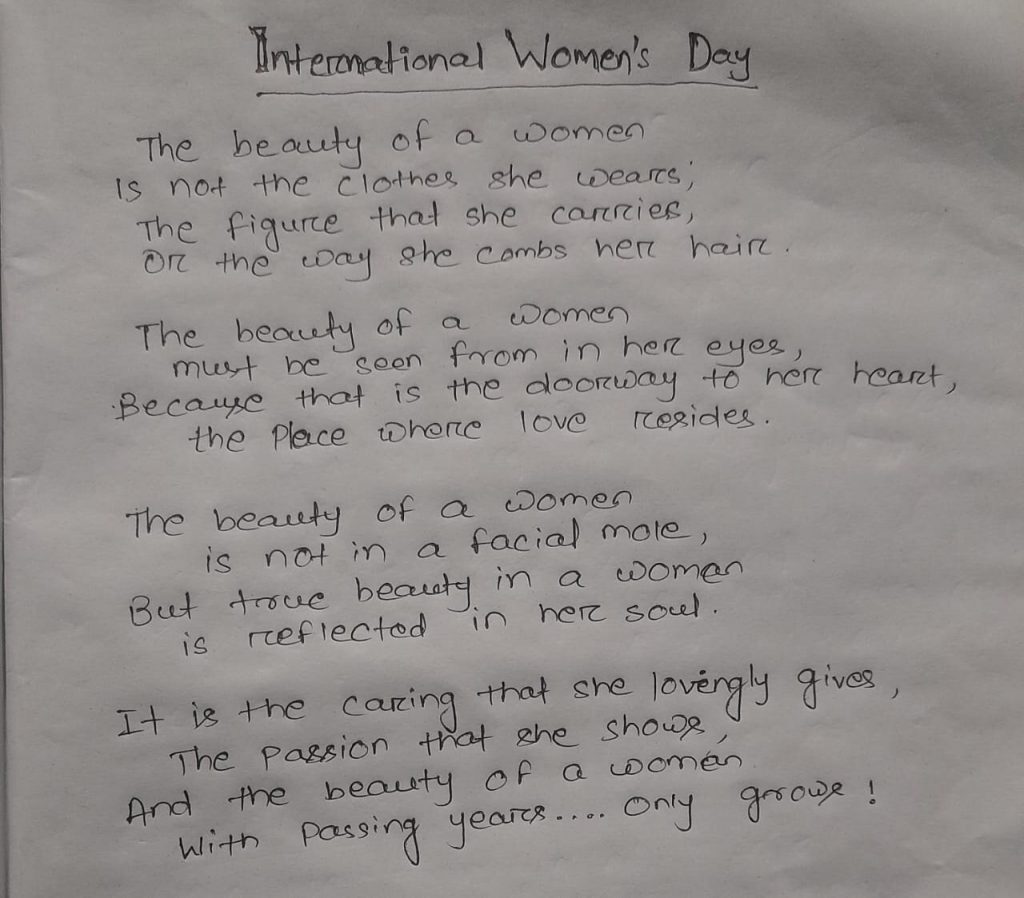 International Women's Day
The beauty of a women
Is not the clothes she wears;
The figure that she carries,
Or the way she combs her hair.
The beauty of a women
must be seen from in her eyes,
Because that is the doorway to her heart,
the place where love resides.
The beauty of a women
is not in a facial mole,
But true beauty in a women
is reflected in her soul.
It is the caring that she lovingly gives,
The passion that she shows,
And the beauty of a women
With passing years.... only grows!